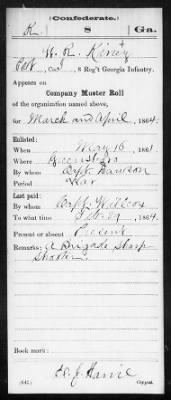 (Confederate.)
K 8 Ga.
W. R. Kiney
Co. 8 Reg't Georgia Infantry.
Appears on
Company Muster Roll
of the organization named above,
for March and April, 1864.
Enlisted:
When May 16, 1861.
Where Greensboro
By whom Capt. Dawson
Period War
Last paid:
By whom Capt. Willcox
To what time Feb. 29, 1864.
Present or absent Present
Remarks: A Brigade Sharp
Shooter.
Book mark:
(642)
Copyist.